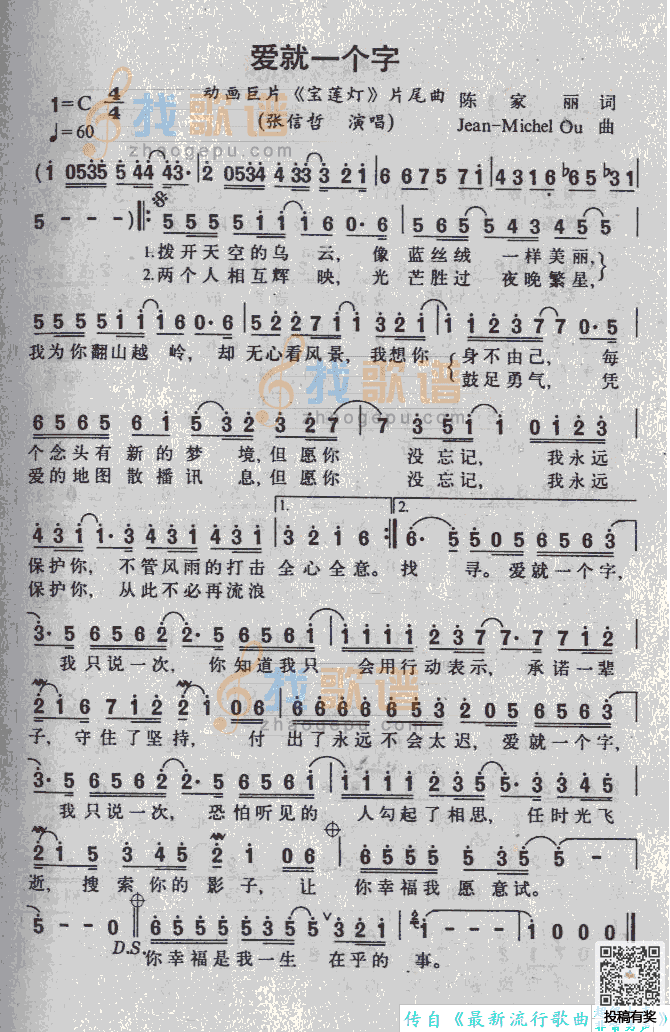 爱就一个字
1=C 4/4 动画巨片《宝莲灯》片尾曲 陈家丽 词
♩=60 (张信哲 演唱) Jean-Michel Ou 曲
找歌谱
zhaogepu.com
(1 0535 5 44 43· | 2 0534 4 33 3 2 1 | 6 6 7 5 7 1 | 4 3 1 6 ♭6 5 ♭3 1 |
5 - - -)‖: 5 5 5 5 5 1 1 1 6 0· 6 | 5 6 5 5 4 3 4 5 5 |
1.拨开天空的乌云, 像 蓝丝绒 一样美丽,
2.两个人相互辉映, 光 芒胜过 夜晚繁星,
5 5 5 5 1 1 1 6 0· 6 | 5 2 2 7 1 1 3 2 1 | 1 1 2 3 7 7 0· 5
我为你翻山越岭, 却 无心看风景, 我想你 身不由己, 每
鼓足勇气, 凭
找歌谱
zhaogepu.com
6 5 6 5 6 1 5 3 2 3 2 7 | 7 3 5 1 1 0 1 2 3
个念头有新的梦境,但愿你 没忘记, 我永远
爱的地图散播讯息,但愿你 没忘记, 我永远
1. 2.
4 3 1 1· 3 4 3 1 4 3 1 | 3 2 1 6 :‖ 6· 5 5 0 5 6 5 6 3
保护你, 不管风雨的打击 全心全意。 找 寻。爱就一个字,
保护你, 从此不必再流浪
3· 5 6 5 6 2 2· 5 6 5 6 1 | 1 1 1 1 2 3 7 7· 7 7 1 2
我只说一次, 你知道我只 会用行动表示, 承诺一辈
找歌谱
zhaogepu.com
2 1 6 7 1 2 2 1 0 6 | 6 6 6 6 6 5 3 2 0 5 6 5 6 3
子, 守住了坚持, 付 出了永远不会太迟, 爱就一个字,
3· 5 6 5 6 2 2· 5 6 5 6 1 | 1 1 1 1 2 3 5 5· 3 3 4 5
我只说一次, 恐怕听见的 人勾起了相思, 任时光飞
2 1 5 3 4 5 2 1 0 6 | 6 5 5 5 5 3 5 5 -
逝, 搜索你的影子, 让 你幸福我愿意试。
5 - - 0 ‖ 6 5 5 5 5 3 1 5 ∨ 5 3 2 1 | 1 - - - | 1 0 0 0 ‖
D.S. 你幸福是我一生 在乎的 事。
传自《最新流行歌曲
投稿有奖